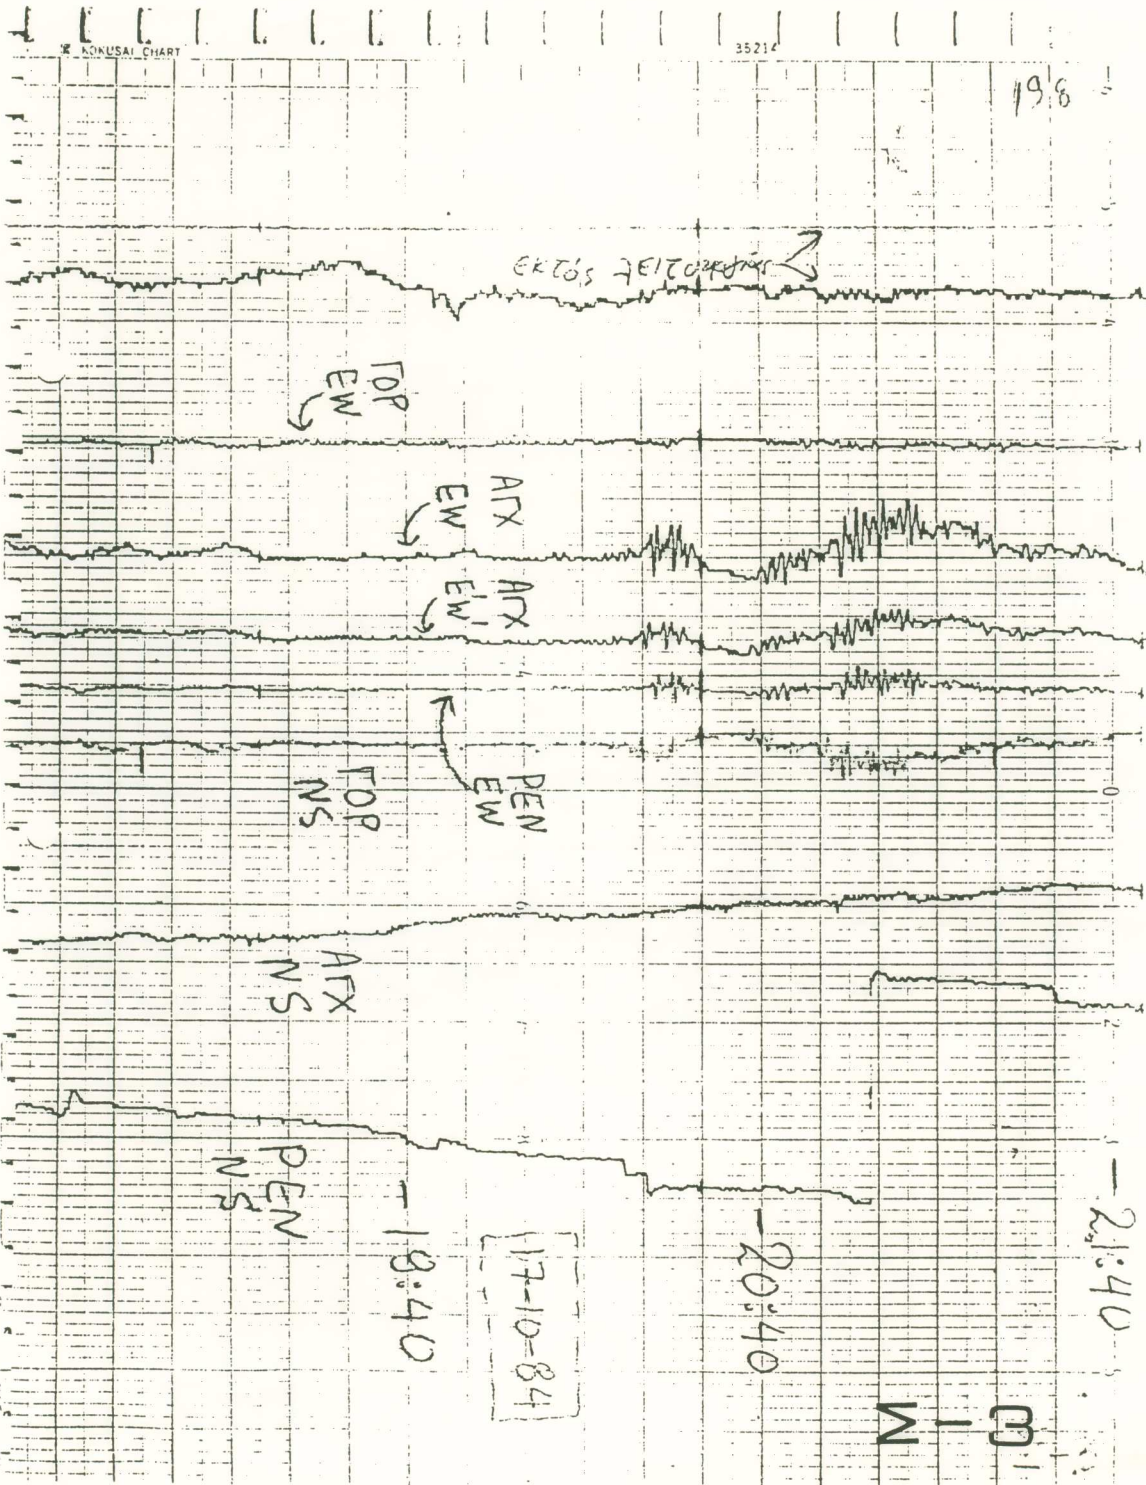 KOKUSAI CHART
35214
198
εκτός λειτουργίας
ΓΟΡ
EW
ΑΓΧ
EW
ΑΓΧ
E'W'
PEN
EW
ΓΟΡ
NS
ΑΓΧ
NS
PEN
NS
18:40
17-10-84
20:40
21:40
M-3